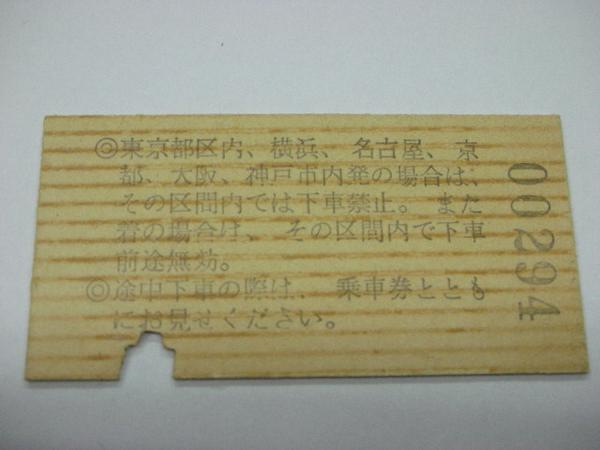 ◎東京都区内、横浜、名古屋、京
都、大阪、神戸市内発の場合は、
その区間内では下車禁止。また
着の場合は、その区間内で下車
前途無効。
◎途中下車の際は、乗車券ととも
にお見せください。
00294